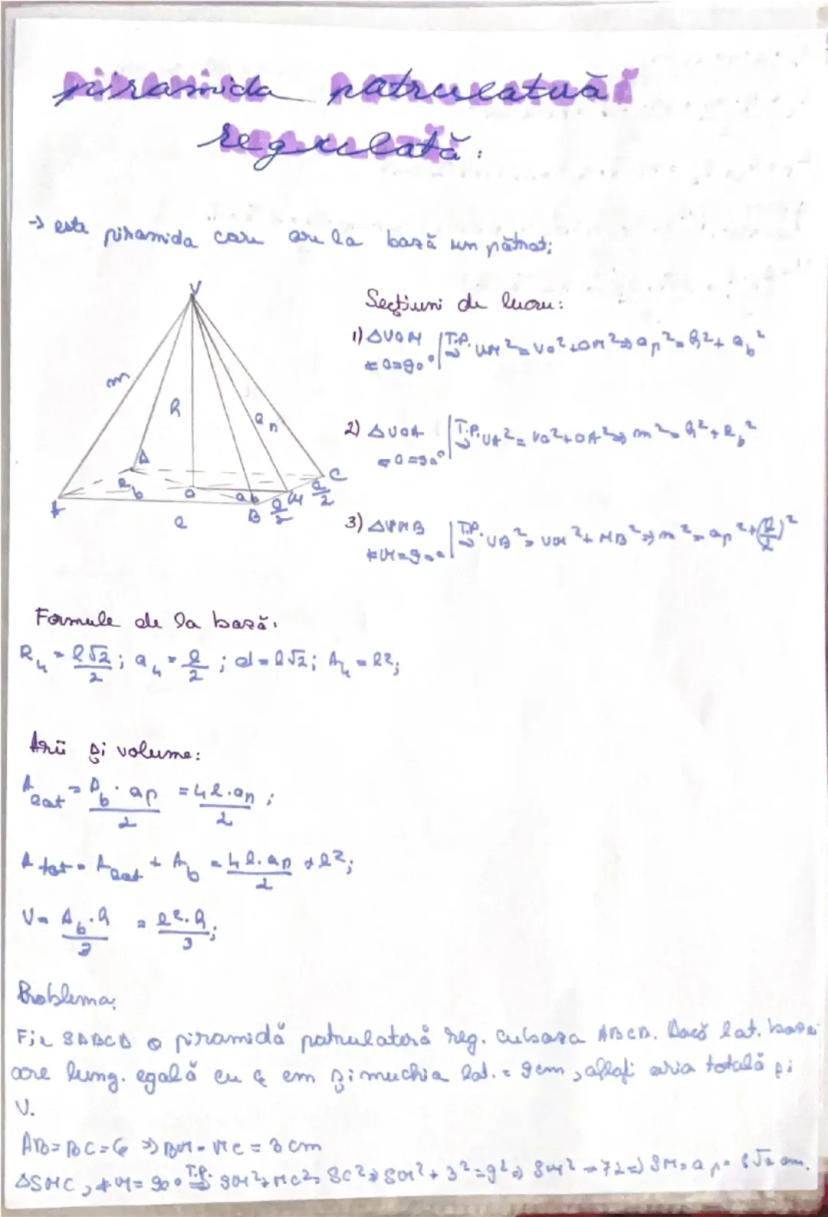 piramida patrulateră
regulată:
→ este piramida care are la bază un pătrat;
V
m
h
ap
D
C
Rb
O
ab
M
l/2
A
l
B
l/2
Secțiuni de lucru:
1) △VOM | T.P. ⇒ VM² = VO² + OM² ⇒ ap² = h² + ab²
∢O = 90°
2) △VOA | T.P. ⇒ VA² = VO² + OA² ⇒ m² = h² + Rb²
∢O = 90°
3) △VMB | T.P. ⇒ VB² = VM² + MB² ⇒ m² = ap² + (l/2)²
∢M = 90°
Formule de la bază:
R₄ = l√2/2 ; a₄ = l/2 ; d = l√2 ; A₄ = l² ;
Arii și volume:
Alat = Pb · ap / 2 = 4l · ap / 2 ;
Atot = Alat + Ab = 4l · ap / 2 + l² ;
V = Ab · h / 3 = l² · h / 3 ;
Problema:
Fie SABCD o piramidă patrulateră reg. cu baza ABCD. Dacă lat. bazei
are lung. egală cu 6 cm și muchia lat. = 9cm, aflați aria totală și
V.
AB = BC = 6 ⇒ BM = MC = 3 cm
△SMC, ∢M = 90° T.P. ⇒ SM² + MC² = SC² ⇒ SM² + 3² = 9² ⇒ SM² = 72 ⇒ SM = ap = 6√2 cm.